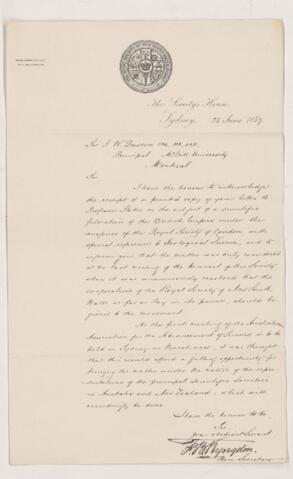 The Society's House,
Sydney, 28 June 1887
Sir J. W. Dawson CMG, LLD, FRS,
Principal McGill University
Montreal
Sir
I have the honour to acknowledge
the receipt of a printed copy of your letter to
Professor Stokes on the subject of a scientific
federation of the British Empire under the
auspices of the Royal Society of London with
special reference to Geological Science, and to
inform you that the matter was duly considered
at the last meeting of the Council of this Society
when it was unanimously resolved that the
cooperation of the Royal Society of New South
Wales as far as lay in its power, should be
given to the movement.
As the first meeting of the Australasian
Association for the Advancement of Science is to be
held in Sydney in March next, it was thought
that this would afford a fitting opportunity for
bringing the matter under the notice of the repre-
sentatives of the principal Scientific Societies
in Australia and New Zealand, which will
accordingly be done.
I have the honour to be
Sir
Your obedient Servant
F. B. Kyngdon.
Hon. Secretary